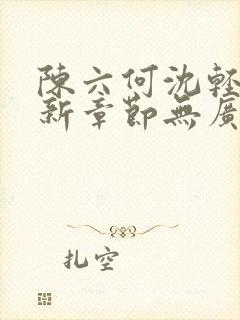 陳六何沈輕
新章節無廣
扎空